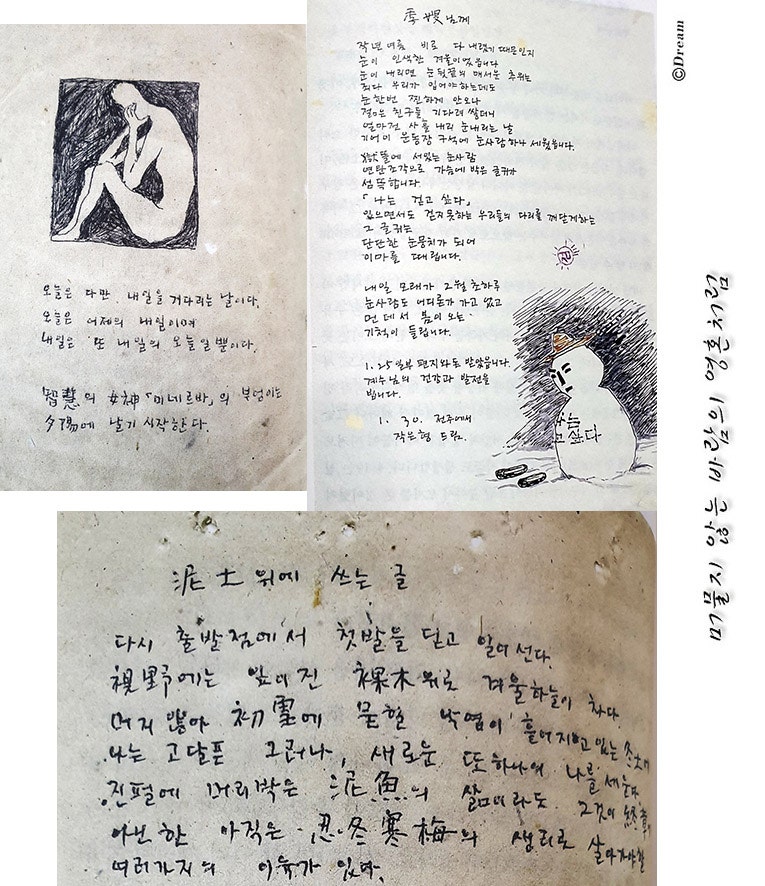 오늘은 다만 내일을 기다리는 날이다.
오늘은 어제의 내일이며
내일은 또 내일의 오늘일 뿐이다.
智慧의 女神「미네르바」의 부엉이는
夕陽에 날기 시작한다.
季嫂님께
작년 여름 비로 다 내렸기 때문인지
눈이 인색한 겨울이었습니다
눈이 내리면 눈 뒤끝의 매서운 추위는
죄다 우리가 입어야하는데도
눈 한번 찐하게 안오나
젊은 친구들 기다려 쌓더니
얼마전 사흘 내리 눈내리는 날
기어이 운동장 구석에 눈사람 하나 세웠습니다.
獄뜰에 서있는 눈사람
연탄조각으로 가슴에 박은 글귀가
섬뜩합니다.
「나는 걷고 싶다」
있으면서도 걷지못하는 우리들의 다리를 깨닫게하는
그 글귀는
단단한 눈뭉치가 되어
이마를 때립니다.
내일 모레가 2월 초하루
눈사람도 어디론가 가고 없고
먼 데서 봄이 오는
기척이 들립니다.
1. 25일부 편지와돈 받았읍니다.
계수님의 건강과 발전을
빕니다.
1. 30. 전주에서
작은형 드림.
나는
고싶다
泥土 위에 쓰는 글
다시 출발점에서 첫발을 딛고 일어선다.
視野에는 잎이 진 裸木 위로 겨울하늘이 차다.
머지 않아 初雪에 묻힐 낙엽이 흩어지고 있는 冬土에
나는 고달픈 그러나, 새로운 또 하나의 나를 세운다.
진펄에 머리박은 泥魚의 삶이라도 그것이 終章이
아닌 한 아직은 忍冬寒梅의 생리로 살아가야할
여러가지의 이유가 있다.
©Dream
머물지 않는 바람의 영혼처럼